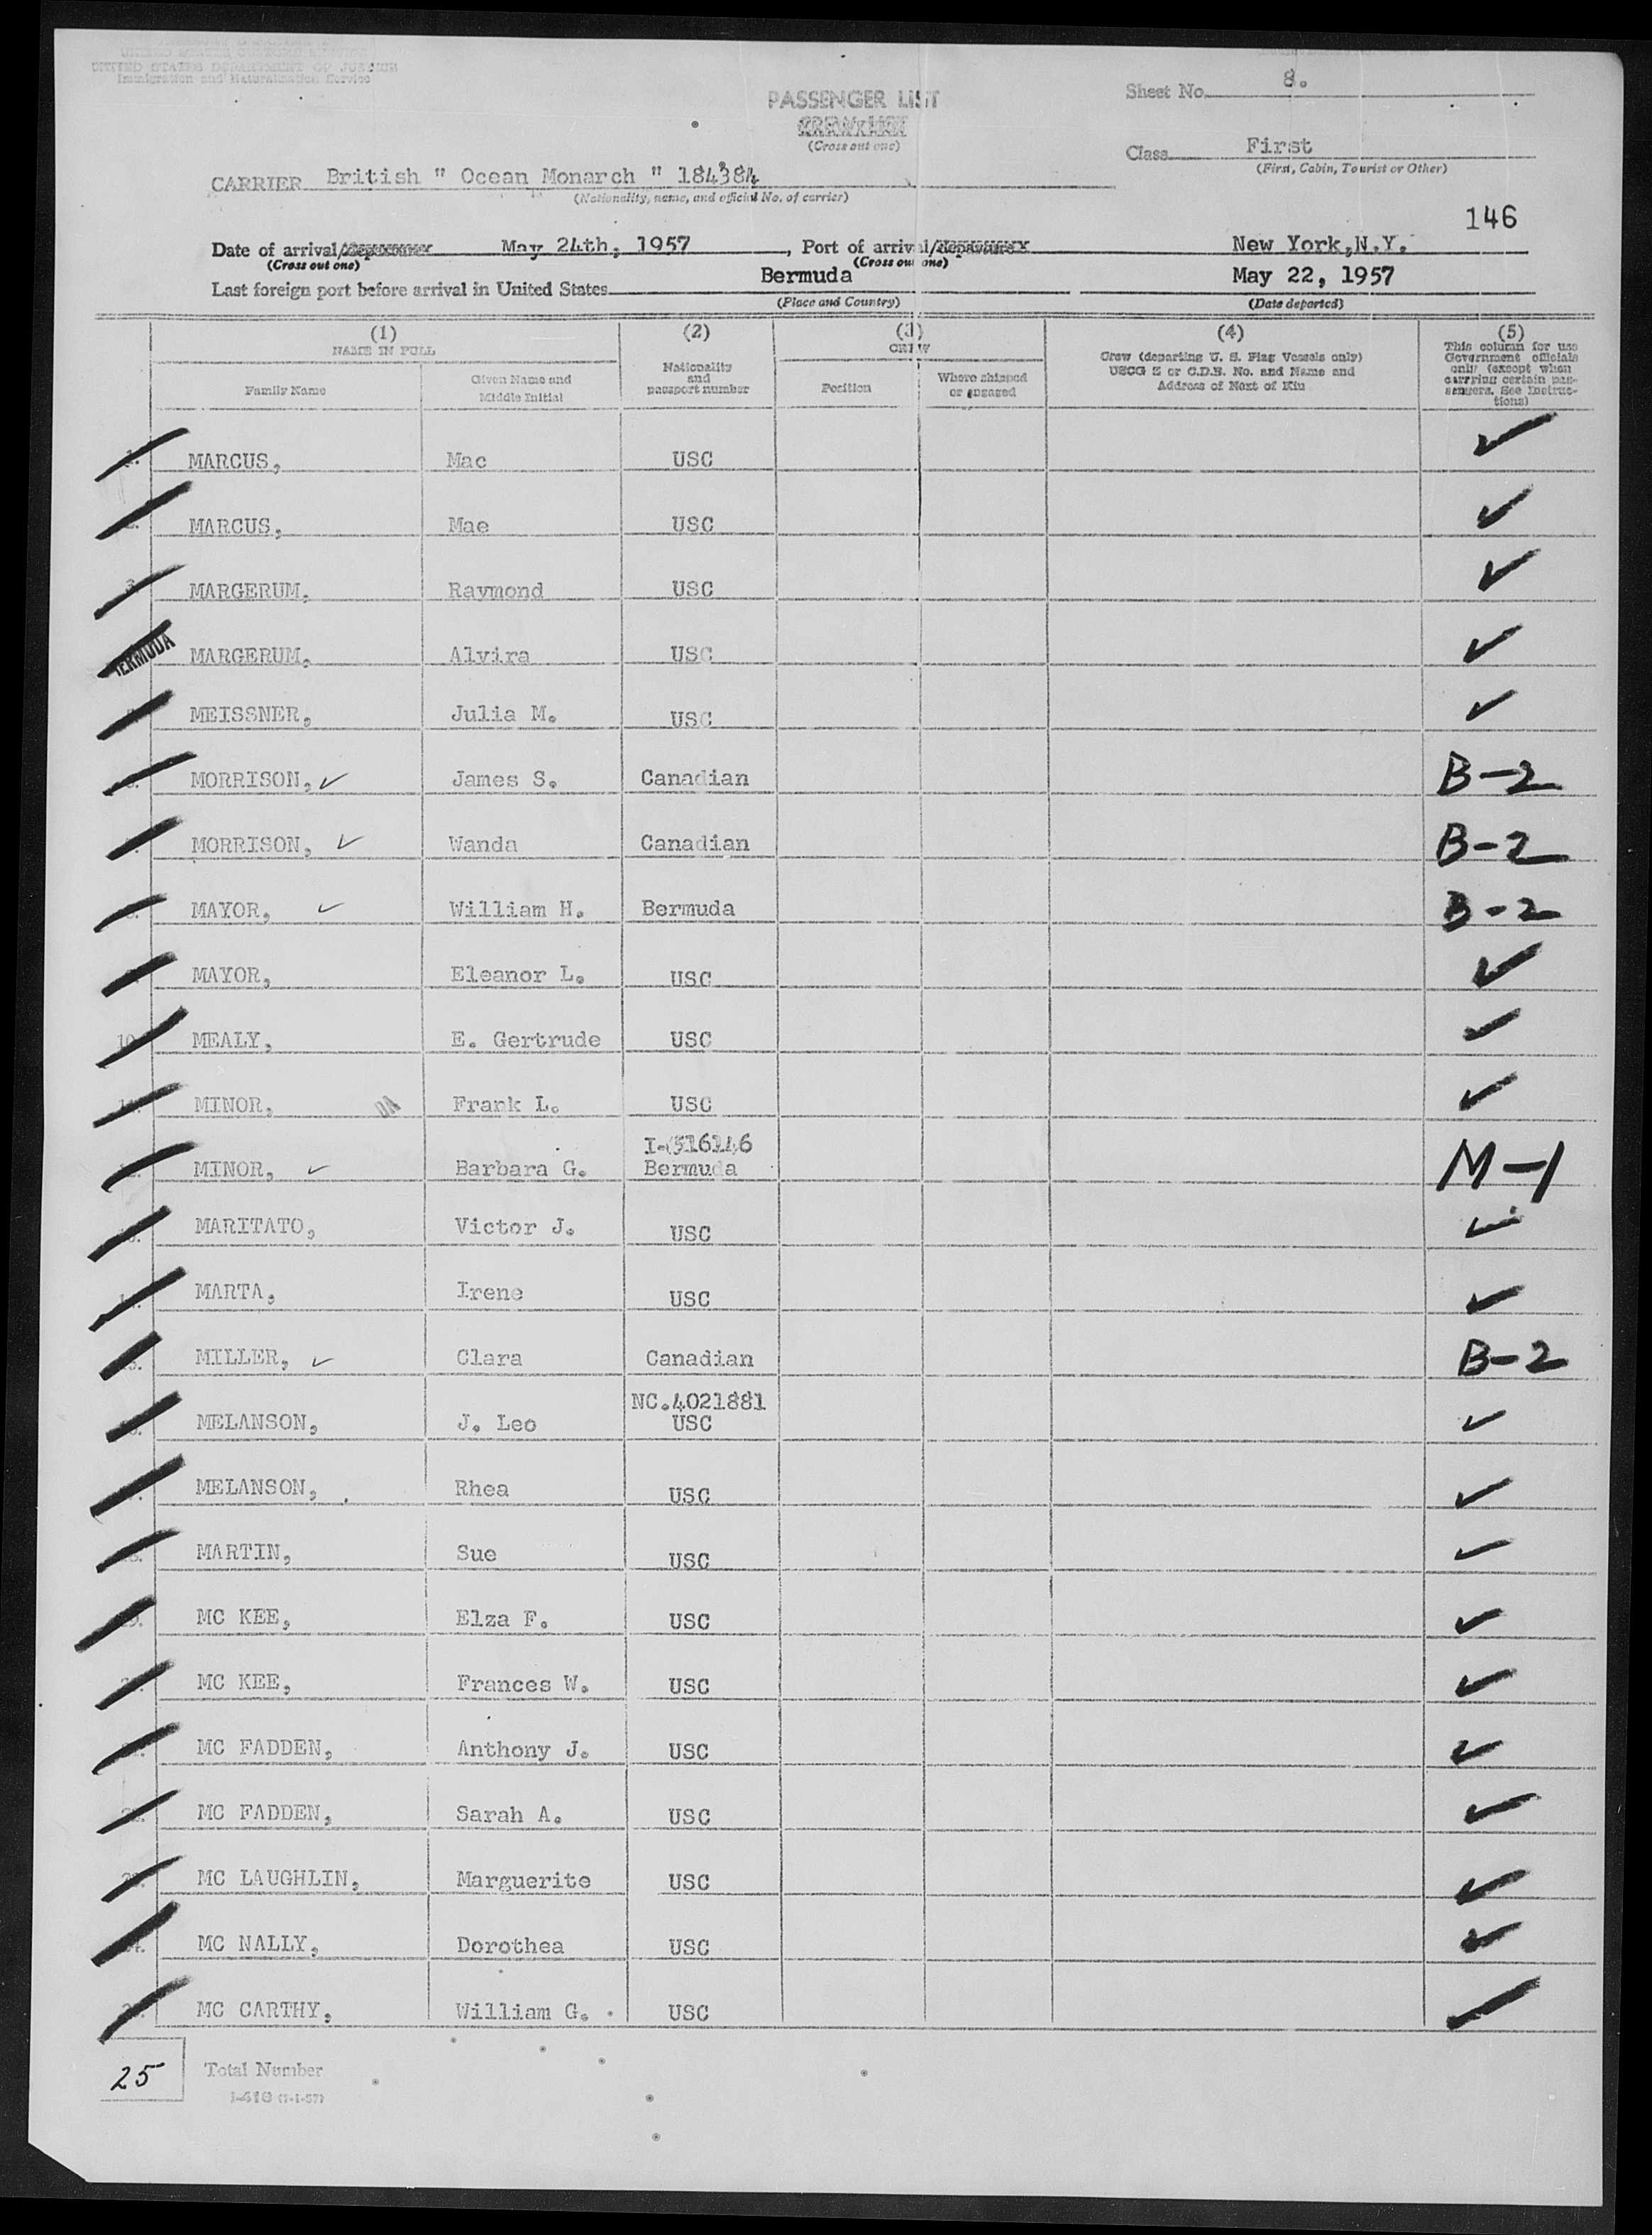 UNITED STATES DEPARTMENT OF JUSTICE
Immigration and Naturalization Service
PASSENGER LIST
CREW LIST
(Cross out one)
Sheet No. 8.
Class First
(First, Cabin, Tourist or Other)
CARRIER British " Ocean Monarch " 184384
(Nationality, name, and official No. of carrier)
146
Date of arrival/ May 24th, 1957 , Port of arrival/ New York,N.Y.
(Cross out one) (Cross out one)
Last foreign port before arrival in United States Bermuda May 22, 1957
(Place and Country) (Date departed)
(1) (2) (3) (4) (5)
NAME IN FULL CREW
Family Name Given Name and Middle Initial Nationality and passport number Position Where shipped or engaged
Crew (departing U. S. Flag Vessels only)
USCG Z or C.D.B. No. and Name and
Address of Next of Kin
This column for use
Government officials
only (except when
carrying certain pas-
sengers. See Instruc-
tions)
1. MARCUS, Mac USC ✓
2. MARCUS, Mae USC ✓
3. MARGERUM, Raymond USC ✓
BERMUDA MARGERUM, Alvira USC ✓
MEISSNER, Julia M. USC ✓
MORRISON, ✓ James S. Canadian B-2
MORRISON, ✓ Wanda Canadian B-2
MAYOR, ✓ William H. Bermuda B-2
MAYOR, Eleanor L. USC ✓
10. MEALY, E. Gertrude USC ✓
MINOR, DA Frank L. USC ✓
I-516146
MINOR, ✓ Barbara G. Bermuda M-1
MARITATO, Victor J. USC ✓
MARTA, Irene USC ✓
MILLER, ✓ Clara Canadian B-2
NC.4021881
MELANSON, J. Leo USC ✓
MELANSON, Rhea USC ✓
MARTIN, Sue USC ✓
MC KEE, Elza F. USC ✓
MC KEE, Frances W. USC ✓
MC FADDEN, Anthony J. USC ✓
MC FADDEN, Sarah A. USC ✓
MC LAUGHLIN, Marguerite USC ✓
MC NALLY, Dorothea USC ✓
MC CARTHY, William G. USC
25 Total Number
I-418 (7-1-57)